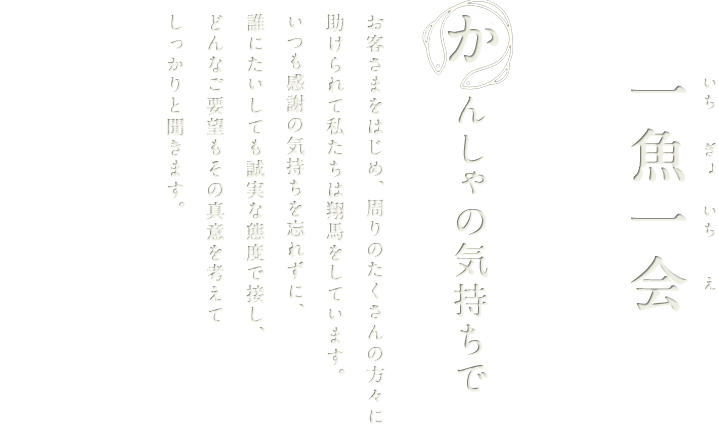 一魚一会
いち ぎょ いち え
かんしゃの気持ちで
お客さまをはじめ、周りのたくさんの方々に
助けられて私たちは翔馬をしています。
いつも感謝の気持ちを忘れずに、
誰にたいしても誠実な態度で接し、
どんなご要望もその真意を考えて
しっかりと聞きます。